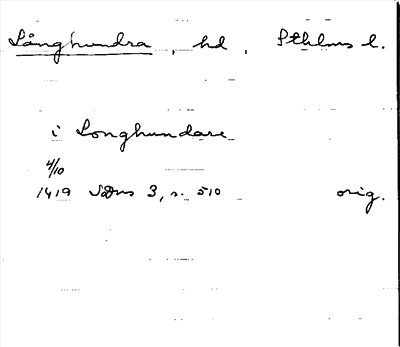 Långhundra, hd, Sthlms l.
i Longhundare
4/10
1419 SDns 3, s. 510 orig.